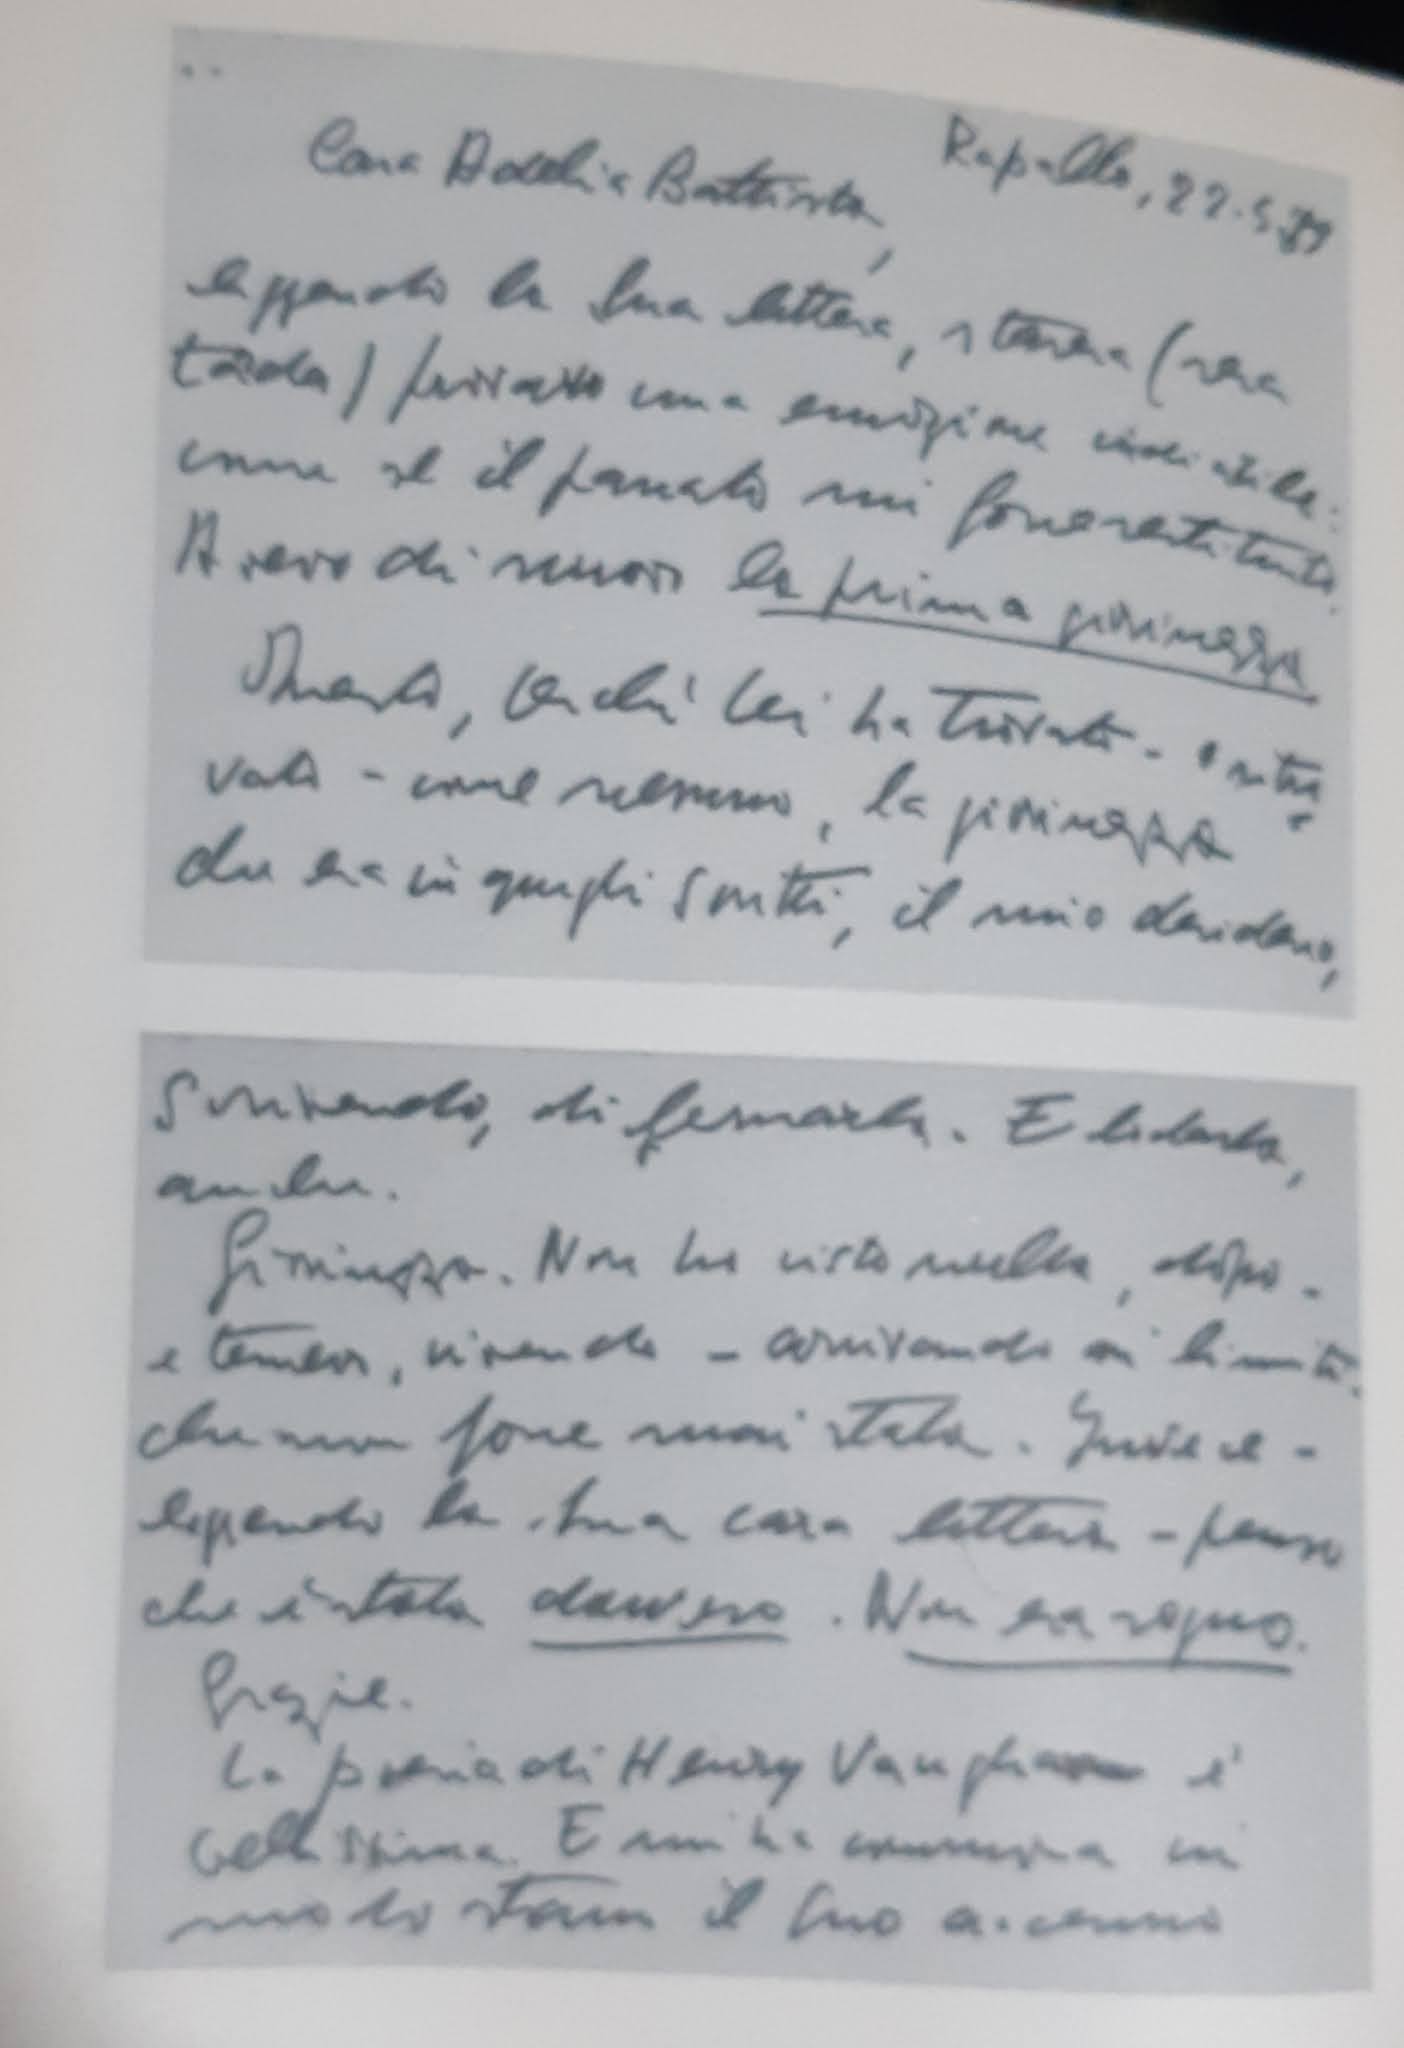 Rapallo, 22.5.89
Cara Adelia Battista,
leggendo la Sua lettera, stasera (sera
tarda) provavo una emozione indicibile:
come se il passato mi fosse restituito.
Avevo di nuovo la prima giovinezza
Questo, perché Lei ha trovato -
- come nessuno, la giovinezza
che era in quegli scritti, il mio desiderio,
scrivendo, di fermarla. E lodarla,
anche.
Giovinezza. Non ho visto nulla, dopo -
e temevo, vivendo - arrivando ai limiti.
che non fosse mai stata. Invece -
leggendo la Sua cara lettera - penso
che è stata davvero. Non era sogno.
Grazie.
La poesia di Henry Vaughan è
bellissima. E mi ha commossa in
modo strano il Suo accenno